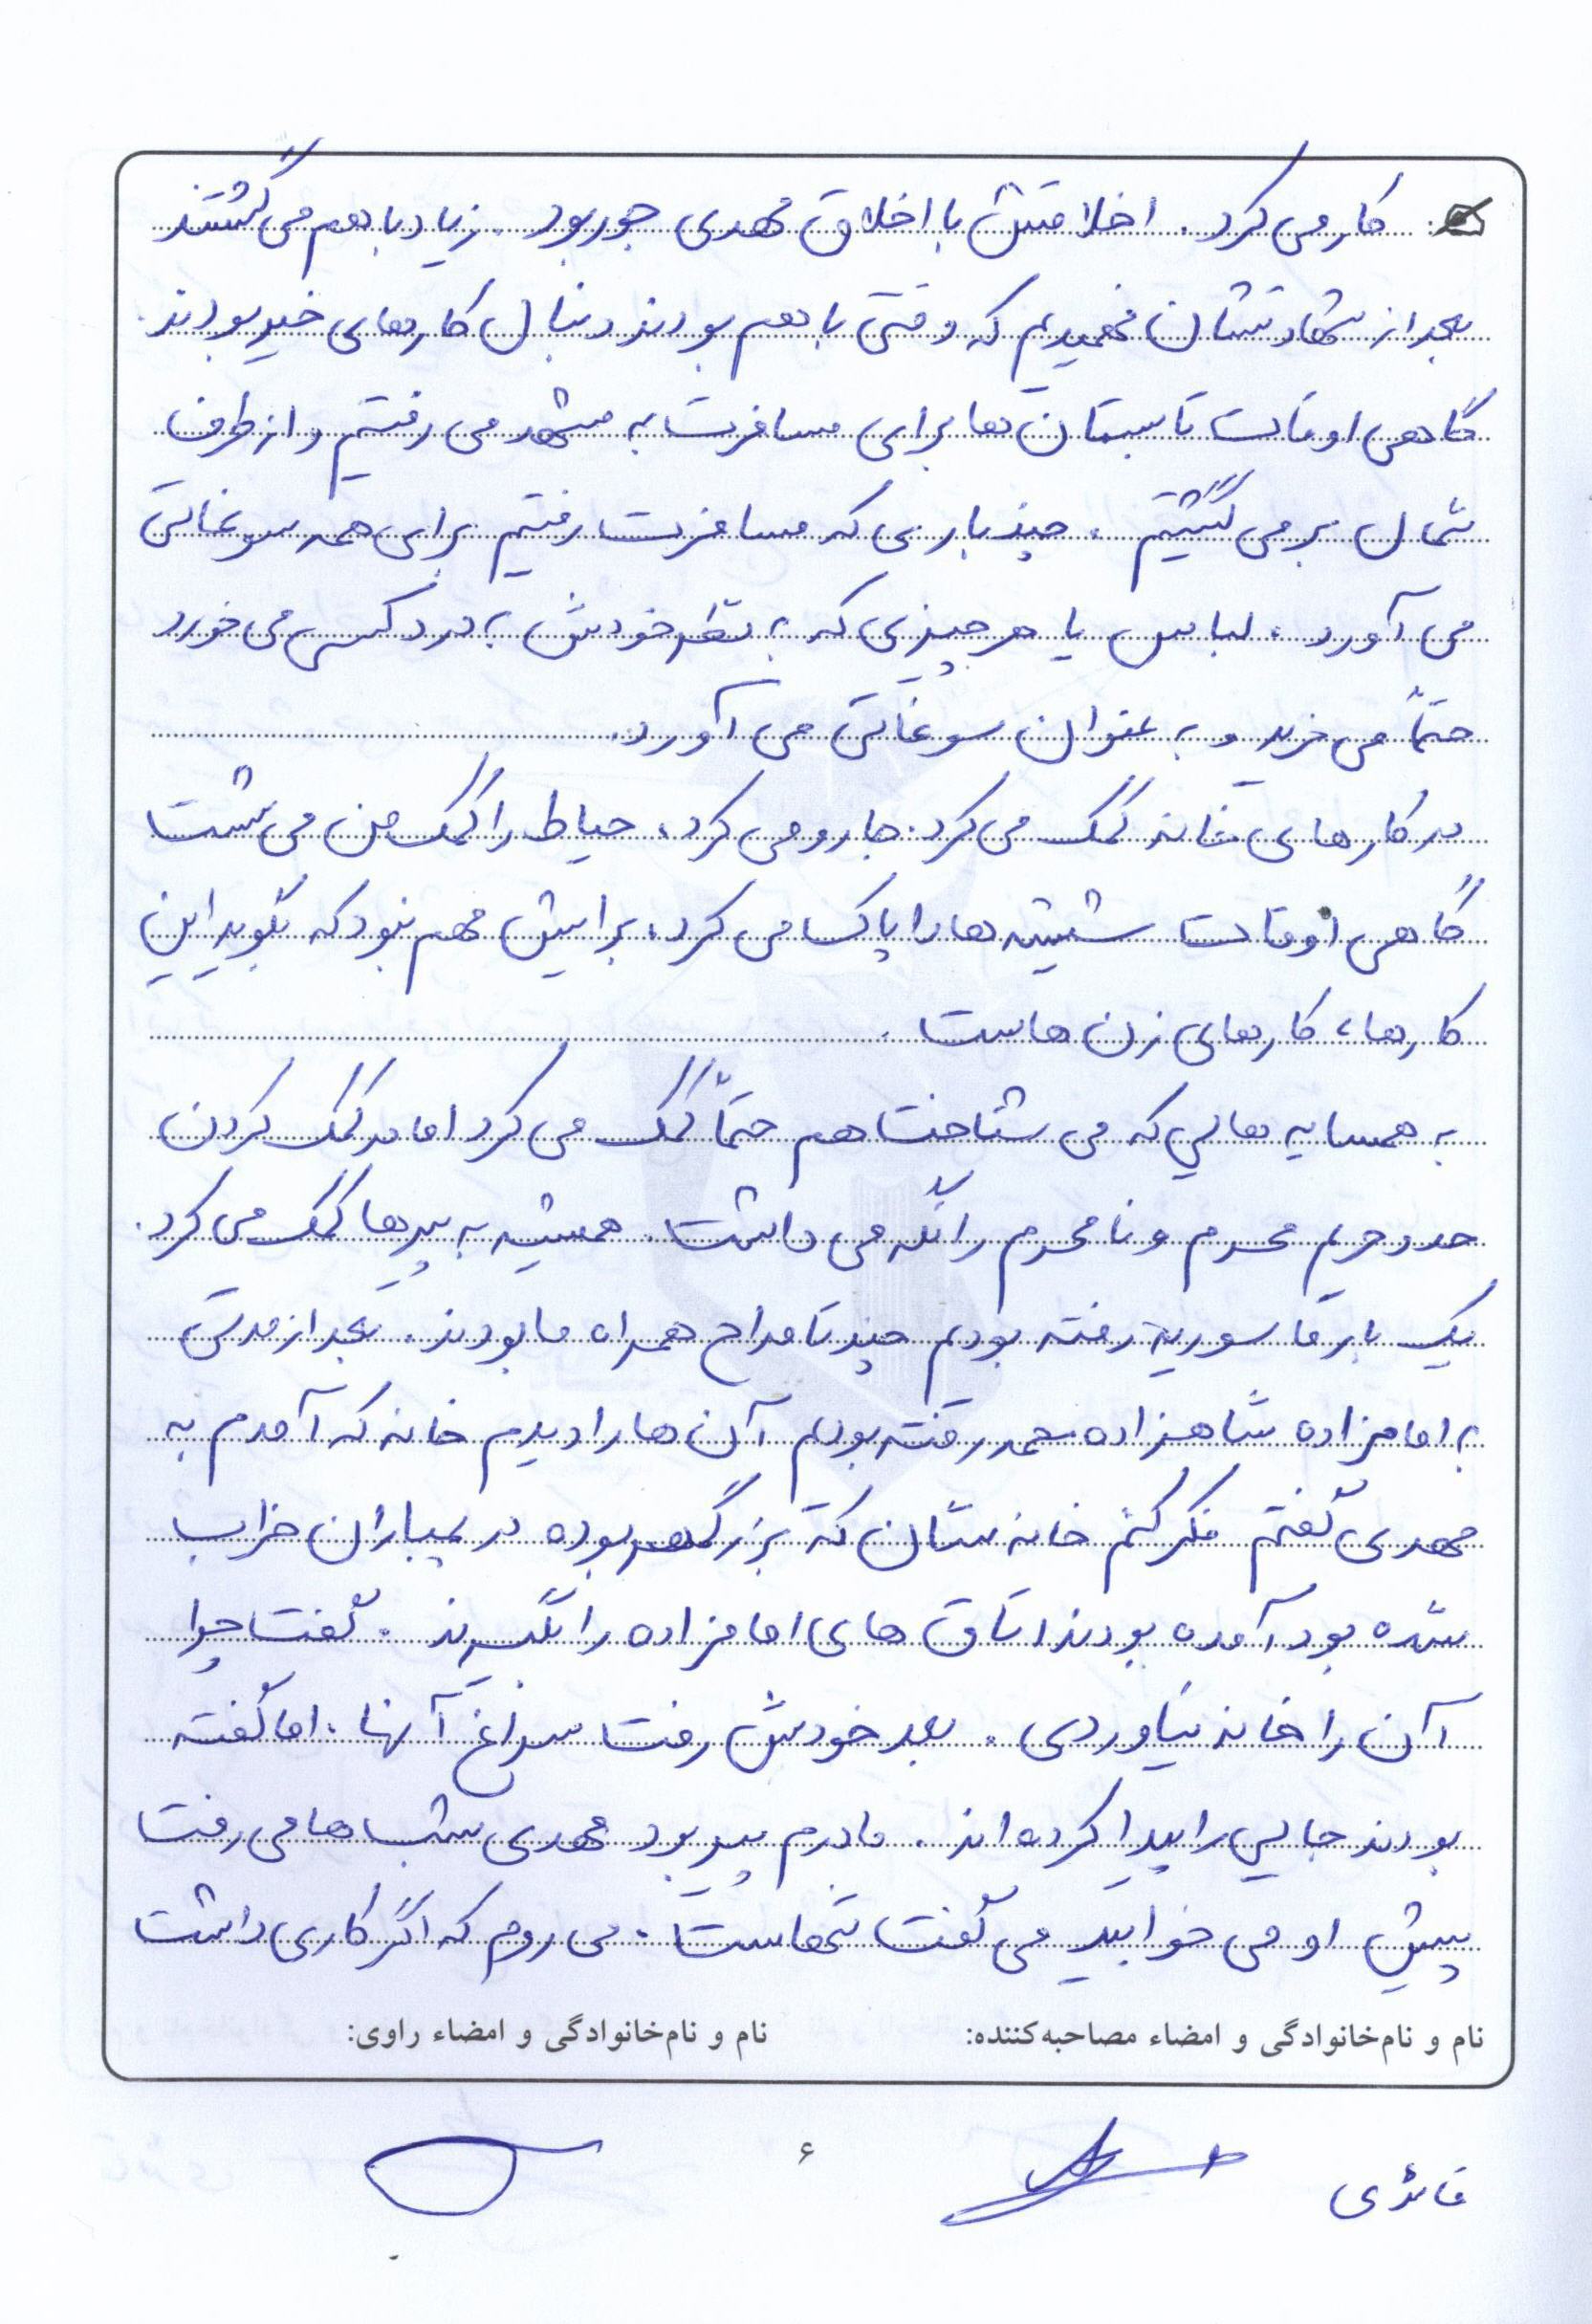 کار می کرد. اخلاقش با اخلاق مهدی جور بود. زیاد با هم می گشتند
بعد از شهادتشان فهمیدیم که وقتی با هم بودند دنبال کارهای خیر بودند.
گاهی اوقات تابستان ها برای مسافرت به مشهد می رفتیم و از طرف
شمال برمی گشتیم. چند باری که مسافرت رفتیم برای همه سوغاتی
می آورد. لباس یا هر چیزی که به نظر خودش به درد کسی می خورد
حتماً می خرید و به عنوان سوغاتی می آورد.
در کارهای خانه کمک می کرد. جارو می کرد، حیاط را کمک من می شست
گاهی اوقات شیشه ها را پاک می کرد. برایش مهم نبود که بگوید این
کارها، کارهای زن هاست.
به همسایه هایی که می شناخت هم حتماً کمک می کرد اما در کمک کردن
حد و حریم محرم و نامحرم را نگه می داشت. همیشه به پیرها کمک می کرد.
یک بار ما سوریه رفته بودیم چند تا مداح همراه ما بودند. بعد از مدتی
به امامزاده شاهزاده محمد رفته بودم آن ها را دیدم خانه که آمدم به
مهدی گفتم فکر کنم خانه شان که بزرگ هم بوده در بمباران خراب
شده بود آمده بودند اتاق های امامزاده را بگیرند. گفت چرا
آن را خانه نیاوردی. بعد خودش رفت سراغ آنها. اما گفته
بودند جایی را پیدا کرده اند. مادرم پیر بود مهدی شب ها می رفت
پیش او می خوابید می گفت تنهاست. می روم که اگر کاری داشت
نام و نام‌خانوادگی و امضاء مصاحبه‌کننده: نام و نام‌خانوادگی و امضاء راوی:
۶